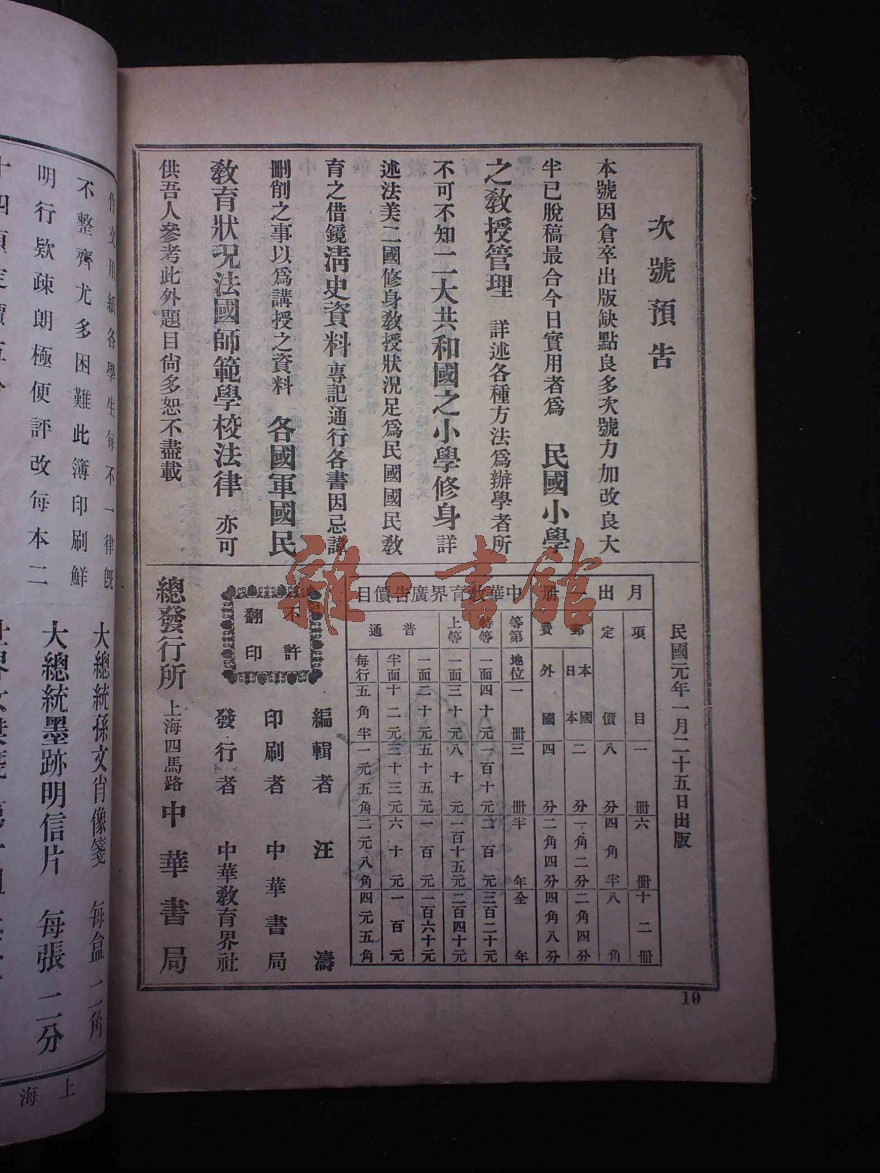 次號預告
本號因倉卒出版缺點良多次號力加改良大
半已脫稿最合今日實用者爲 民國小學
之教授管理 詳述各種方法爲辦學者所
不可不知二大共和國之小學修身詳
述法美二國修身敎授狀況足爲民國國民敎
育之借鏡淸史資料專記通行各書因忌諱
刪削之事以爲講授之資料 各國軍國民
敎育狀況法國師範學校法律 亦可
供吾人參考此外題目尙多恕不盡載
民國元年一月二十五日出版
月出一册
項目 一册 六册 十二册
定價 八分 四角半 八角
郵費 本國 日本 二分 一角二分 二角四分
外國 四分 二角四分 四角八分
中華敎育界廣吿價目
等第 地位 一册 三册 半年 全年
特等 一面 四十元 一百十元 二百元 三百二十元
上等 一面 三十元 八十元 一百十五元 二百四十元
普通 一面 二十元 五十五元 一百元 一百六十元
半面 十二元 三十三元 六十元 一百元
每行 五角半 一元五角 二元八角 四元五角
不許
翻印
編輯者 汪濤
印刷者 中華書局
發行者 中華敎育界社
總發行所 上海四馬路 中華書局
10
雜·書館
作文用紙各學生每不一律旣
不整齊尤多困難此簿印刷鮮
明行欵疎朗極便評改每本二
十四頁定價五分
大總統孫文肖像箋 每盒二角
大總統墨跡明信片 每張二分
上海